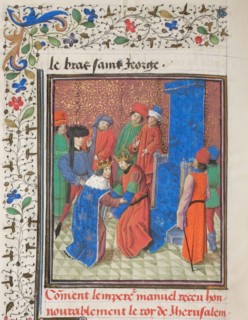 le bras saint george.
Cōment lempere⁊ manuel receu hon
nourablement le roy de Iherusalem